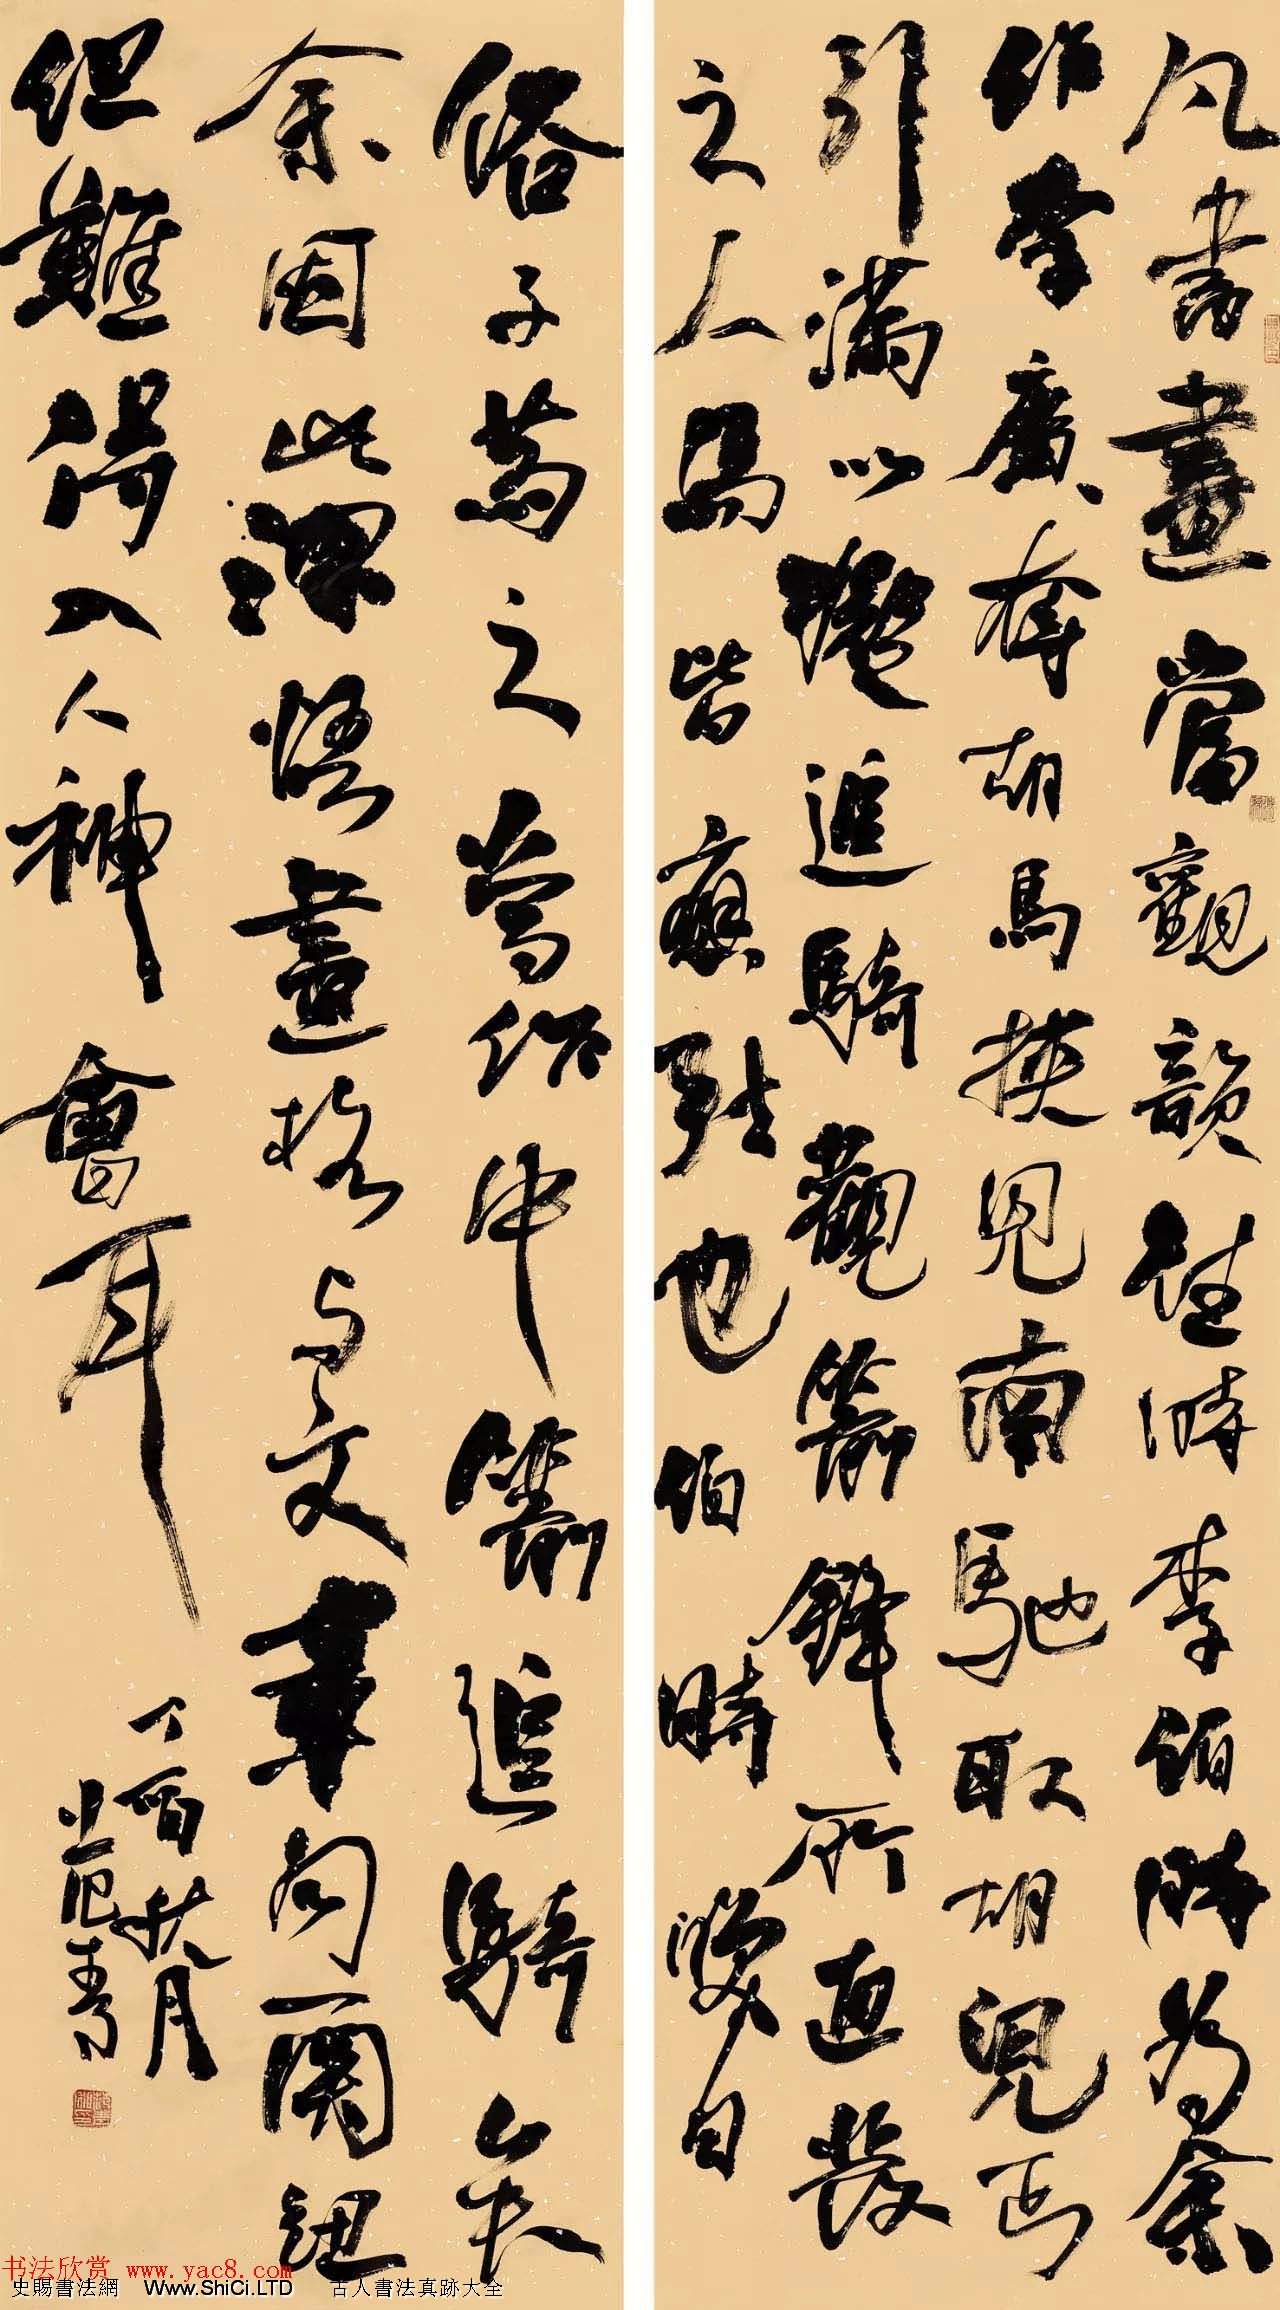 凡書畫當觀韻往時李伯時為余
作李廣奪胡馬挾兒南馳取胡兒弓
引滿以擬追騎觀箭鋒所直發
之人馬皆應弦也伯時笑曰
俗子為之當作中箭追騎矣
余因此深悟畫格与文章同一關紐
但難得入人神會耳
丁酉秋月
书法欣赏 www.yac8.com
史賜書法網 Www.ShiCi.LTD 古人書法真跡大全